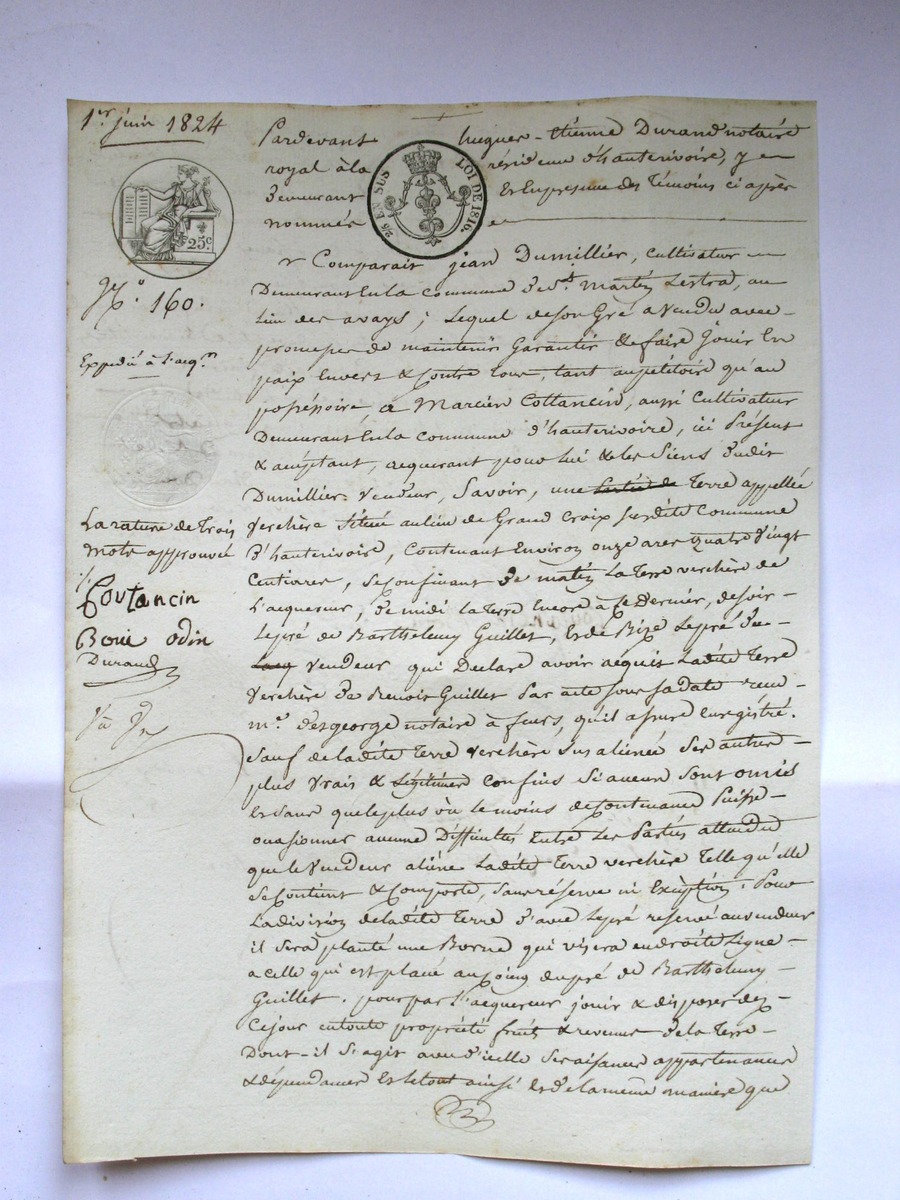 1er juin 1824
25c
25 EN SUS
LOI DE 1816
No 160.
Expédié à l'acqr
La rature de Trois
Mots approuvée
Coutancin
Boui odin
Durand
Pardevant hugues-étienne Durand notaire
royal à la résidence d'hauterivoire, y
Demeurant Et En presence des Témoins ci après
nommés
Comparait jean Dumillier, cultivateur
Demeurant En la commune de St Martin Lestra, au
lieu des avays; Lequel de son Gré a Vendu avec
promesse de maintenir Garantir & faire Jouir En
paix Envers & Contre tous, tant au pétitoire qu'au
possessoire, a Marcien Cottancin, aussi Cultivateur
Demeurant En la commune d'hauterivoire, ici Présent
& acceptant, acquerant pour Lui & les Siens dudit
Dumillier Vendeur, Savoir, une partie de Terre appellée
Verchère Située au lieu de Grand Croix sur dite Commune
d'hauterivoire, Contenant Environ onze ares Quatre Vingt
Centiares, se Confinant de matin La Terre verchère de
L'acquereur, de midi la terre Encore à ce Dernier, de soir
Le pré de Barthelemy Guillet, & de Bize Le pré du
Lacq Vendeur qui Declare avoir acquis Ladite Terre
Verchère de Benoit Guillet Par acte sous sa date reçu
me Desgeorge notaire à feurs, qu'il assure Enregistré.
Sauf de ladite Terre verchère sus alienée ses autres
plus Vrais & Légitimes Confins Si aucuns Sont omis
Et Sans que le plus où le moins de Contenance Puisse
occasionner aucune Difficultés Entre Les Parties attendu
que le Vendeur aliène Ladite Terre verchère Telle qu'elle
Se Contient & Comporte, Sans réserve ni Exception. Pour
La division de ladite Terre d'avec Le pré reservé au vendeur
il Sera planté une Borne qui visera en droite Ligne
a celle qui est placée au du pré de Barthelemy
Guillet. pour par l'acquereur jouir & disposer dez
Ce jour en toute propriété fruits & revenus de la Terre
Dont il S'agit avec d'icelle Ses aisances appartenances
& dépendances Et le tout ainsi & de la même manière que